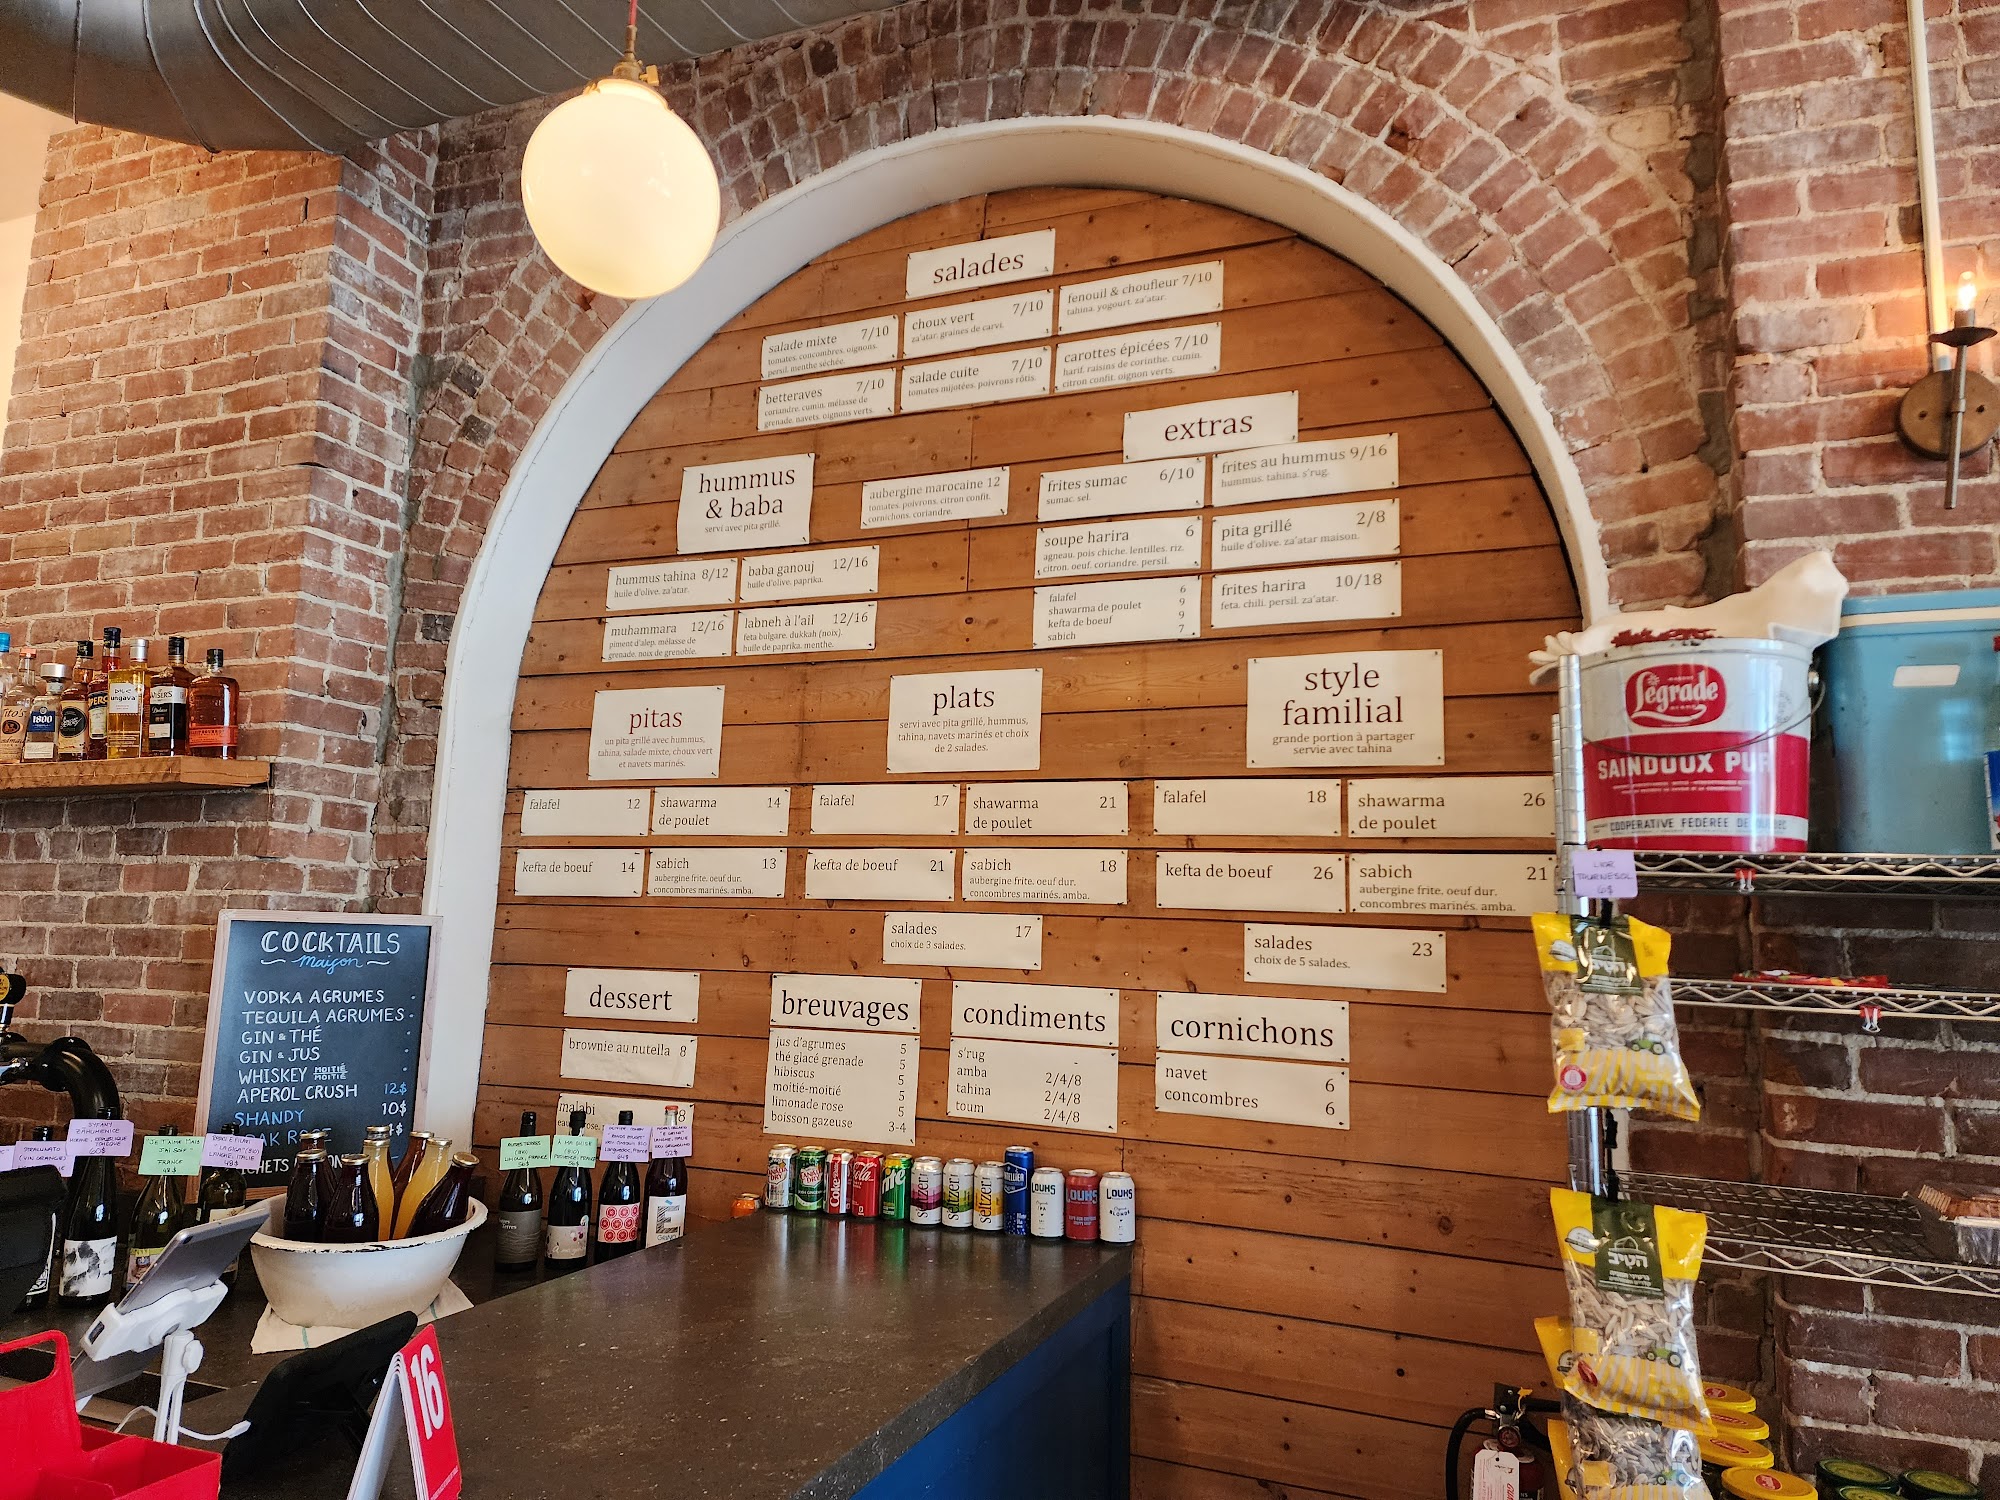 salades
salade mixte 7/10
tomates. concombres. oignons.
persil. menthe séchée.
choux vert 7/10
za'atar. graines de carvi.
fenouil & choufleur 7/10
tahina. yogourt. za'atar.
betteraves 7/10
coriandre. cumin. mélasse de
grenade. navets. oignons verts.
salade cuite 7/10
tomates mijotées. poivrons rôtis.
carottes épicées 7/10
harif. raisins de corinthe. cumin.
citron confit. oignon verts.
hummus
& baba
servi avec pita grillé.
aubergine marocaine 12
tomates. poivrons. citron confit.
cornichons. coriandre.
hummus tahina 8/12
huile d'olive. za'atar.
baba ganouj 12/16
huile d'olive. paprika.
muhammara 12/16
piment d'alep. mélasse de
grenade. noix de grenoble.
labneh à l'ail 12/16
feta bulgare. dukkah (noix).
huile de paprika. menthe.
extras
frites sumac 6/10
sumac. sel.
frites au hummus 9/16
hummus. tahina. s'rug.
soupe harira 6
agneau. pois chiche. lentilles. riz.
citron. oeuf. coriandre. persil.
pita grillé 2/8
huile d'olive. za'atar maison.
falafel 6
shawarma de poulet 9
kefta de boeuf 9
sabich 7
frites harira 10/18
feta. chili. persil. za'atar.
pitas
un pita grillé avec hummus,
tahina, salade mixte, choux vert
et navets marinés.
falafel 12
shawarma 14
de poulet
kefta de boeuf 14
sabich 13
aubergine frite. oeuf dur.
concombres marinés. amba.
plats
servi avec pita grillé, hummus,
tahina, navets marinés et choix
de 2 salades.
falafel 17
shawarma 21
de poulet
kefta de boeuf 21
sabich 18
aubergine frite. oeuf dur.
concombres marinés. amba.
salades 17
choix de 3 salades.
style
familial
grande portion à partager
servie avec tahina
falafel 18
shawarma 26
de poulet
kefta de boeuf 26
sabich 21
aubergine frite. oeuf dur.
concombres marinés. amba.
salades 23
choix de 5 salades.
dessert
brownie au nutella 8
malabi 8
breuvages
jus d'agrumes 5
thé glacé grenade 5
hibiscus 5
moitié-moitié 5
limonade rose 5
boisson gazeuse 3-4
condiments
s'rug -
amba 2/4/8
tahina 2/4/8
toum 2/4/8
cornichons
navet 6
concombres 6
COCKTAILS
maison
VODKA AGRUMES
TEQUILA AGRUMES
GIN & THÉ
GIN & JUS
WHISKEY MOITIÉ MOITIÉ
APEROL CRUSH 12$
SHANDY 10$
ungava
1800
Ségrade
SAINDOUX PUR
COOPERATIVE FEDEREE DE
LIOR
TOURNESOL
6$
CANADA DRY
CANADA DRY
Coke
Cola
seltzer
seltzer
seltzer
LOUHS
LOUHS
LOUHS
BLONDE
16